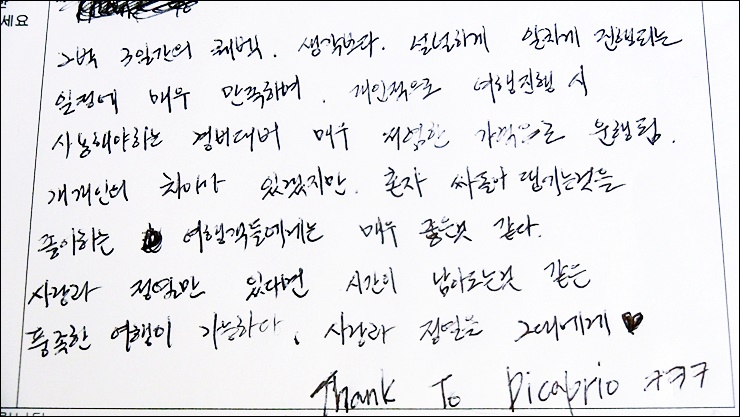 세요
2박 3일간의 퀘벡. 생각보다. 널널하게 알차게 진행되는
일정에 매우 만족하며. 개인적으로 여행진행 시
사용해야하는 경비대비 매우 저렴한 가격으로 운행됨.
개개인의 차이가 있겠지만. 혼자 싸돌아 댕기는것을
좋아하는 여행객들에게는 매우 좋은것 같다.
사랑과 정열만 있다면 시간이 남아도는것 같은
풍족한 여행이 가능하다. 사랑과 정열을 그대에게 ♥
Thank To Dicaprio ㅋㅋㅋ